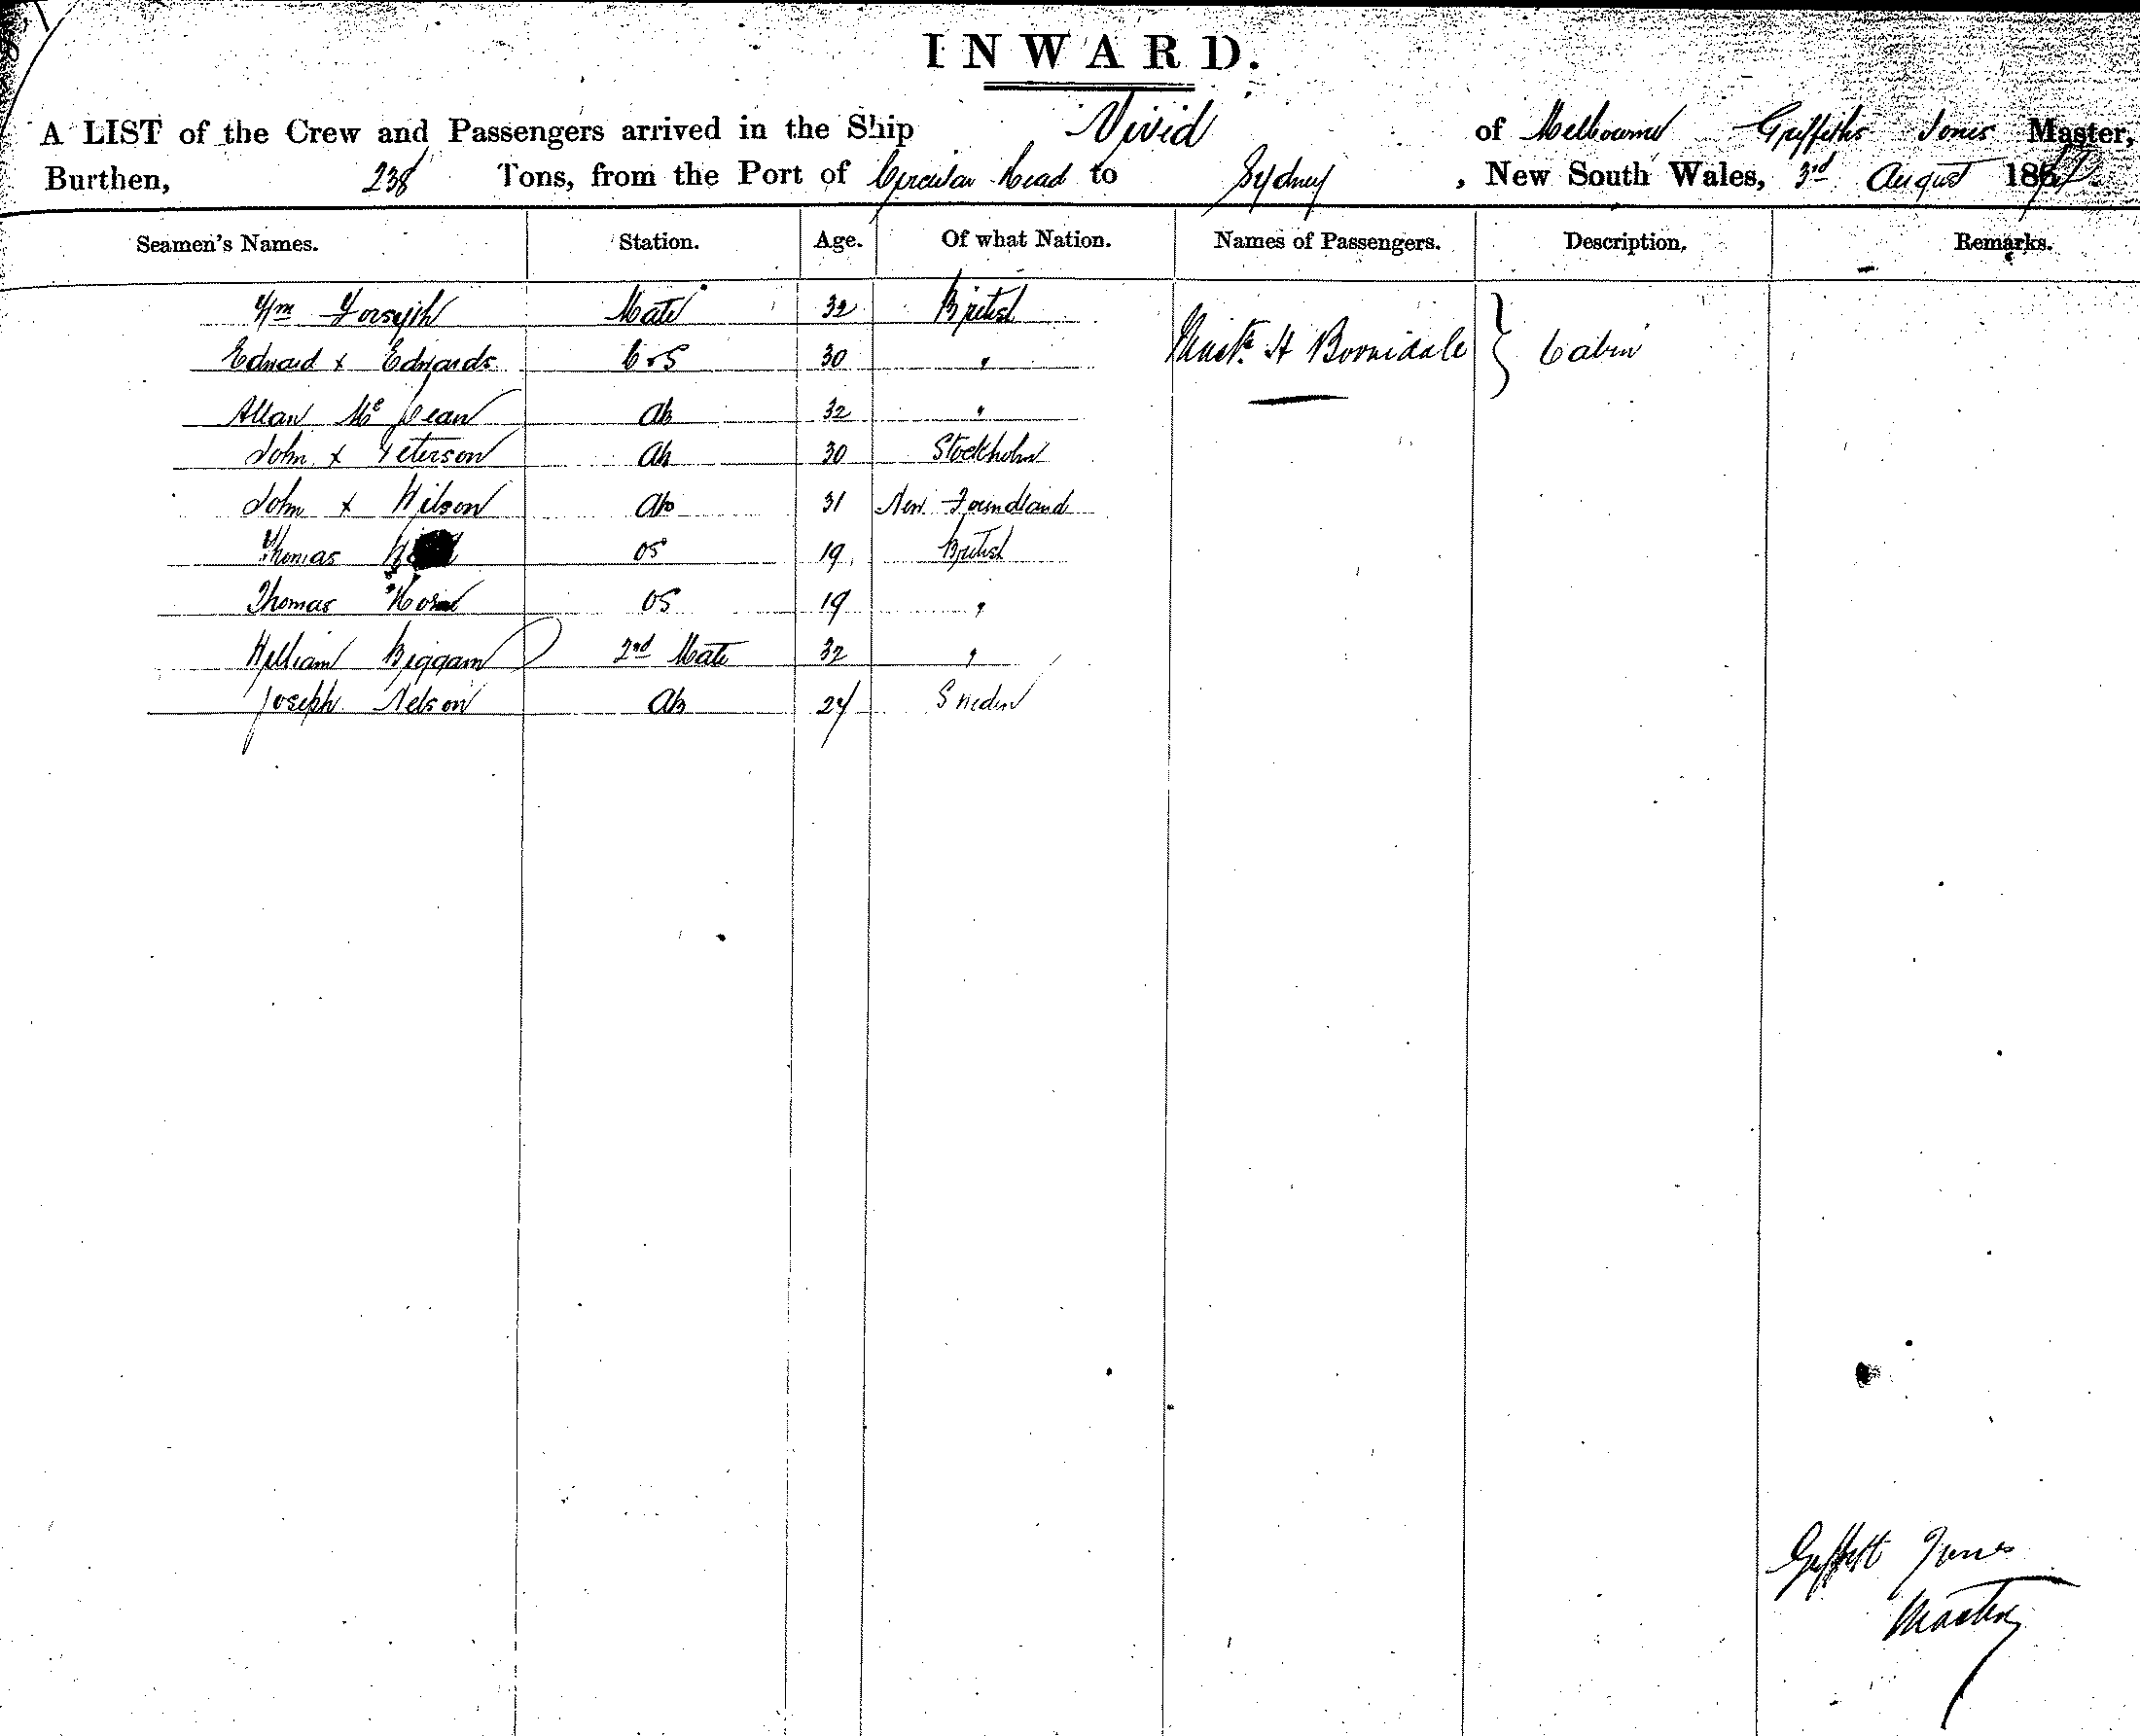 INWARD.
A LIST of the Crew and Passengers arrived in the Ship Vivid of Melbourne Griffiths Jones Master,
Burthen, 238 Tons, from the Port of Circular Head to Sydney, New South Wales, 3rd August 186
Seamen's Names. Station. Age. Of what Nation. Names of Passengers. Description. Remarks.
Wm Forsyth Mate 32 British
Edward x Edwards C & S 30 "
Mastr. H Cabin
Allan Mc Lean AB 32 "
John x Peterson AB 30 Stockholm
John x Wilson AB 31 New Foundland
Thomas OS 19 British
Thomas Horne OS 19 "
William Biggam 2nd Mate 32 "
Joseph Nelson AB 24 Sweden
Griffith Jones
Master